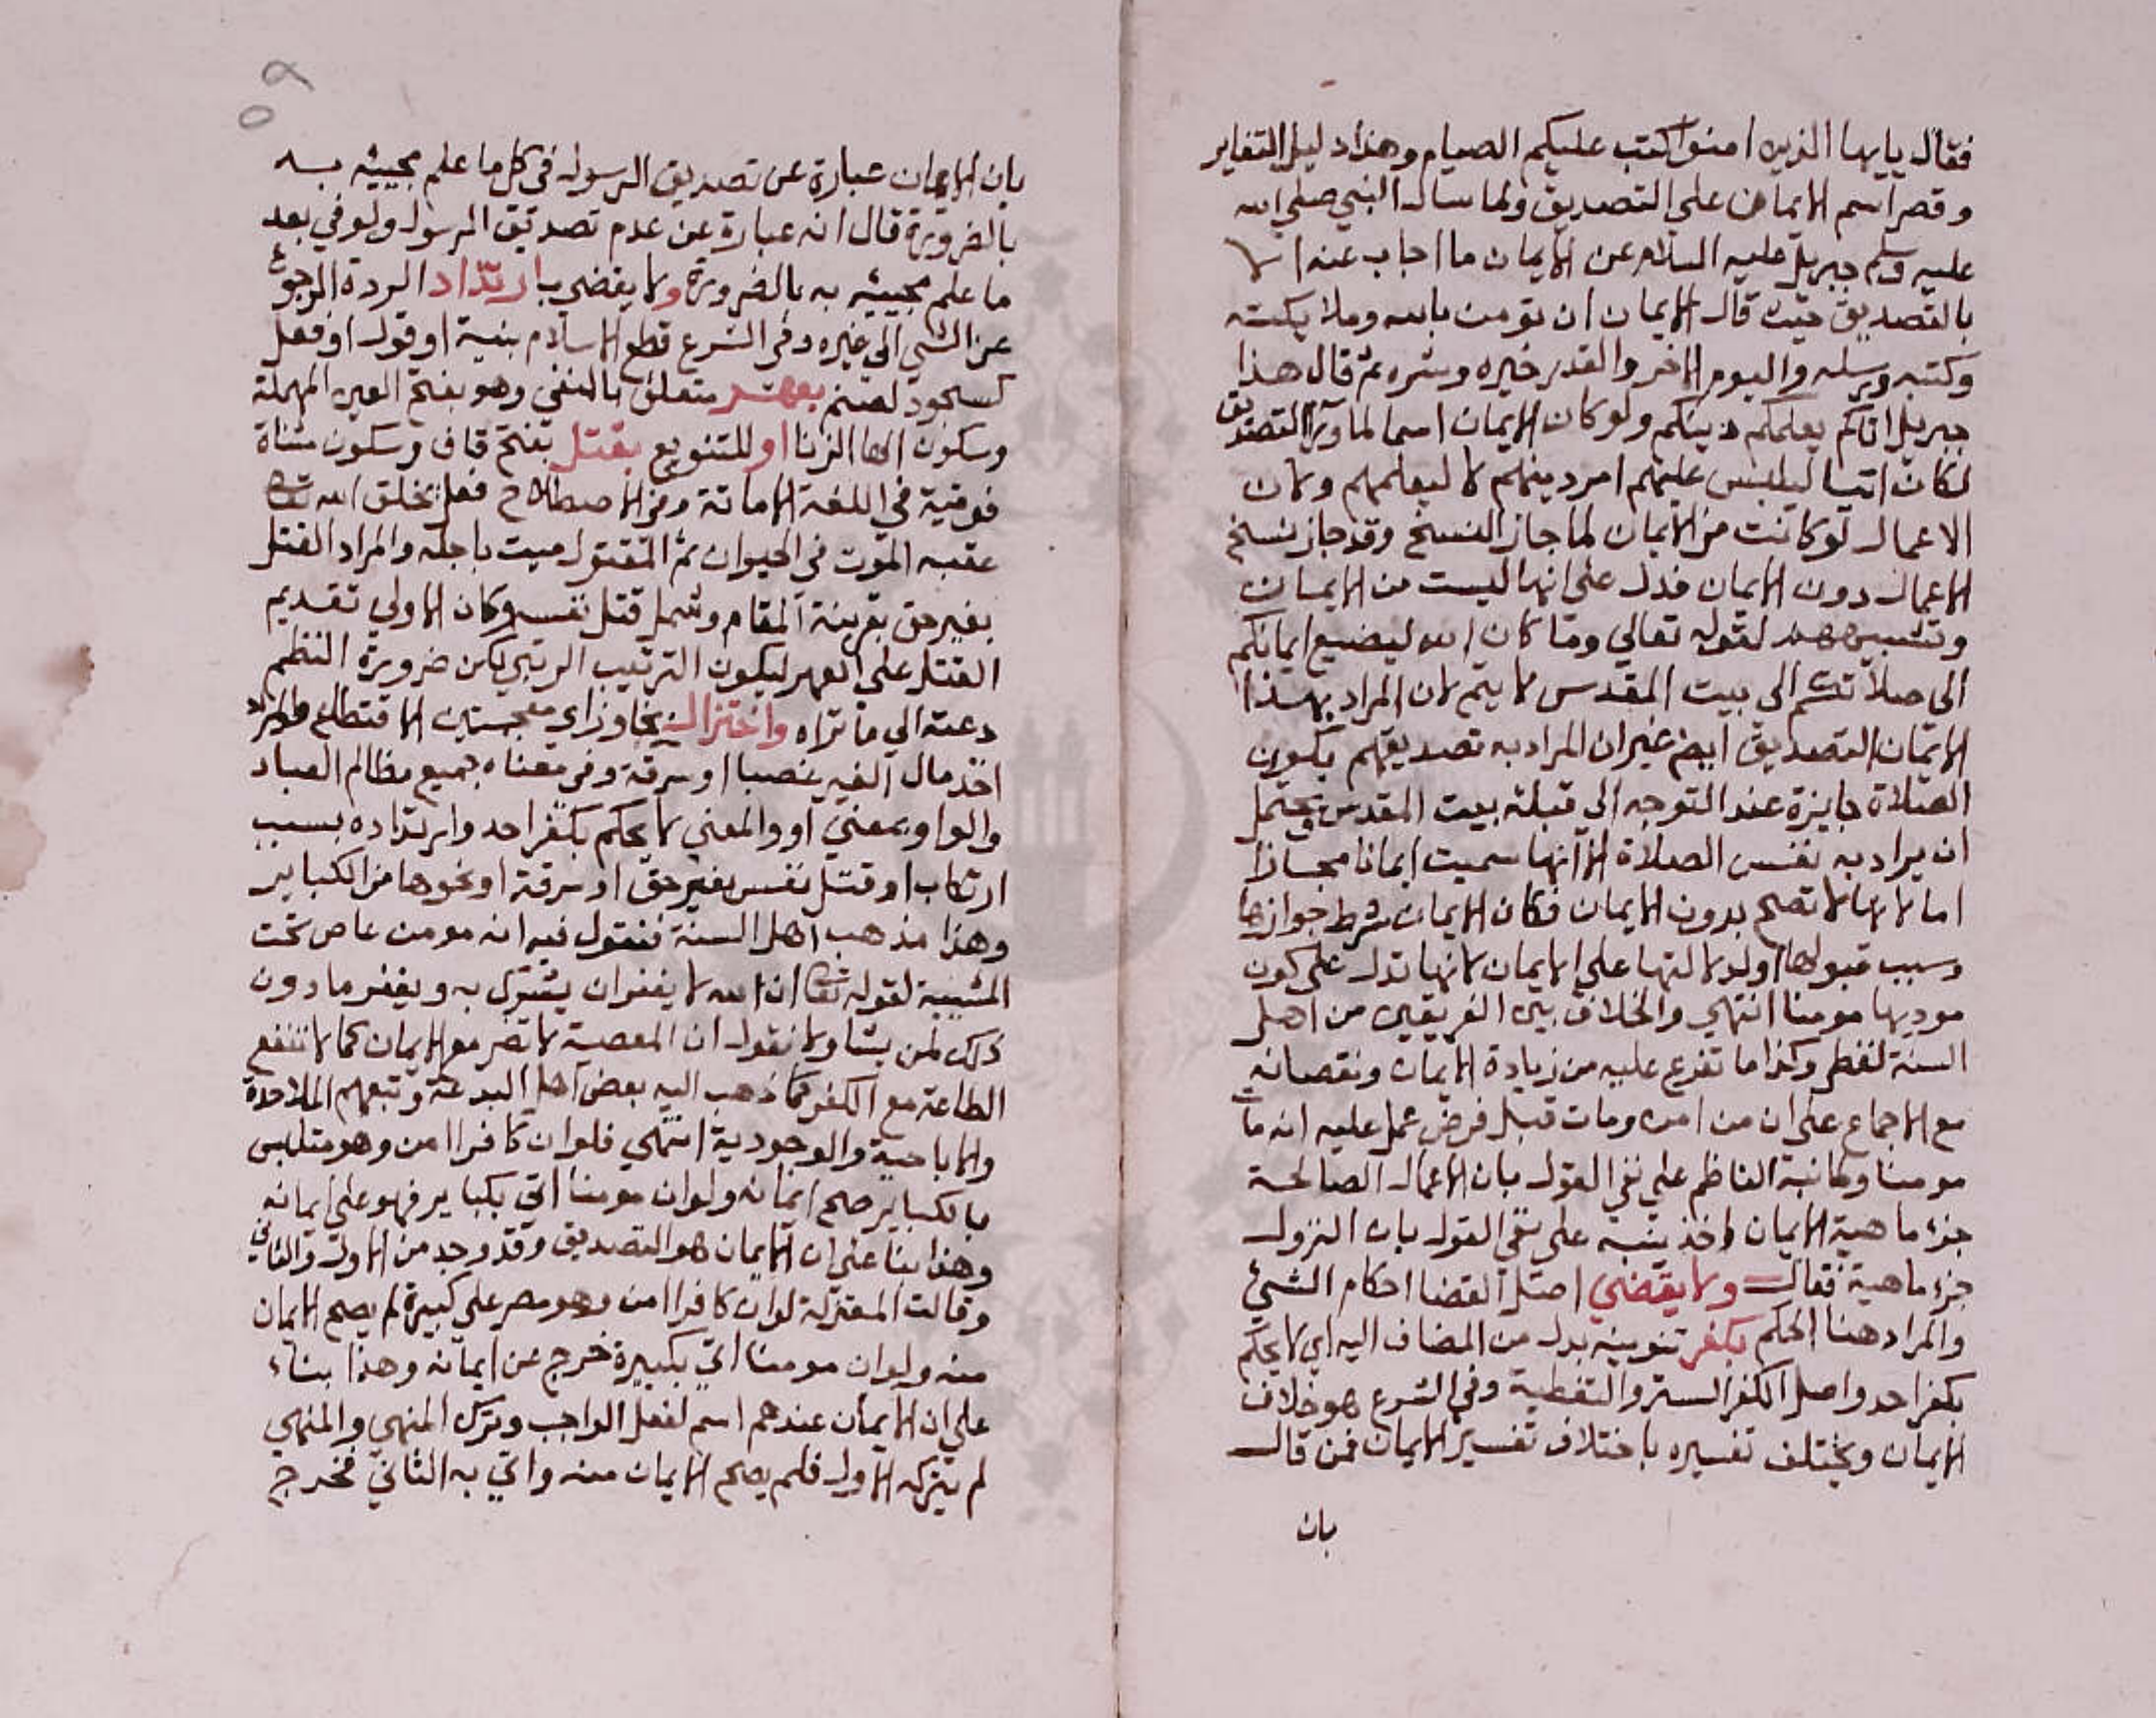 فقال يايها الذين امنوا كتب عليكم الصيام وهذا دليل التغاير
وقصر اسم الايمان علي التصديق ولما سال النبي صلي الله
عليه وسلم جبريل عليه السلام عن الايمان ما اجاب عنه الا
بالتصديق حيث قال الايمان ان تومن بالله وملايكته
وكتبه ورسله واليوم الاخر والقدر خيره وشره ثم قال هذا
جبريل اتاكم يعلمكم دينكم ولو كان الايمان اسما لما ورا التصديق
لكان اتيا ليلبس عليهم امر دينهم لا ليعلمهم ولان
الاعمال لو كانت من الايمان لما جاز النسخ وقد جاز نسخ
الاعمال دون الايمان فدل علي انها ليست من الايمان
لقوله تعالي وما كان الله ليضيع ايمانكم
الي صلاتكم الي بيت المقدس لا يتم لان المراد بهذا
الايمان التصديق ايضا غير ان المراد به تصديقهم بكون
الصلاة جايزة عند التوجه الي قبلة بيت المقدس ويحتمل
ان يراد به نفس الصلاة الا انها سميت ايمانا مجازا
اما لانها لا تصح بدون الايمان فكان الايمان شرط جوازها
وسبب قبولها او لدلالتها علي الايمان لانها تدل علي كون
موديها مومنا انتهي والخلاف بين الفريقين من اهل
السنة لفظي وكذا ما تفرع عليه من زيادة الايمان ونقصانه
مع الاجماع علي ان من امن ومات قبل فرض عمل عليه انه مات
مومنا ولما نبه الناظم علي نفي القول بان الاعمال الصالحة
جزء ماهية الايمان اخذ ينبه علي نفي القول بان النزول
جزء ماهية فقال ولا يقضي اصل القضا احكام الشيء
والمراد هنا الحكم بكفر تنوينه بدل من المضاف اليه اي لا يحكم
بكفر احد واصل الكفر الستر والتغطية وفي الشرع هو خلاف
الايمان ويختلف تفسيره باختلاف تفسير الايمان فمن قال
بان
٥٩
بان الايمان عبارة عن تصديق الرسول في كل ما علم مجييه به
بالضرورة قال انه عبارة عن عدم تصديق الرسول ولو في بعد
ما علم مجييه به بالضرورة ولا يقضي بارتداد الردة الرجوع
عن الشي الي غيره وفي الشرع قطع الاسلام بنية او قول او فعل
كسجود لصنم بعهر متعلق بالنفي وهو بفتح العين المهملة
وسكون الها الزنا او للتنويع بقتل بفتح قاف وسكون مثناة
فوقية في اللغة الاماتة وفي الاصطلاح فعل يخلق الله تعالي
عقبه الموت في الحيوان ثم المقتول ميت باجله والمراد القتل
بغير حق بقرينة المقام وشمل قتل نفسه وكان الاولي تقديم
القتل علي العهر ليكون الترتيب الرتبي لكن ضرورة النظم
دعته الي ما تراه واختزال بخا وزاي معجمتين الاقتطاع والمراد
اخذ مال الغير غصبا او سرقة وفي معناه جميع مظالم العباد
والواو بمعني او والمعني لا يحكم بكفر احد وارتداده بسبب
ارتكاب او قتل نفس بغير حق او سرقة او نحوها من الكباير
وهذا مذهب اهل السنة فنقول فيه انه مومن عاص تحت
المشيية لقوله تعالي ان الله لا يغفر ان يشرك به ويغفر ما دون
ذلك لمن يشا ولا نقول ان المعصية لا تضر مع الايمان كما لا تنفع
الطاعة مع الكفر كما ذهب اليه بعض اهل البدعة وتبعهم الملاحدة
والاباحية والوجودية انتهي فلو ان كافرا امن وهو متلبس
بالكباير صح ايمانه ولو ان مومنا اتي بكباير فهو علي ايمانه
وهذا بنا علي ان الايمان هو التصديق وقد وجد من الاول والثاني
وقالت المعتزلة لو ان كافرا امن وهو مصر علي كبيرة لم يصح الايمان
منه ولو ان مومنا اتي بكبيرة خرج عن ايمانه وهذا بناء
علي ان الايمان عندهم اسم لفعل الواجب وترك المنهي والمنهي
لم يتركه الاول فلم يصح الايمان منه واتي به الثاني فخرج